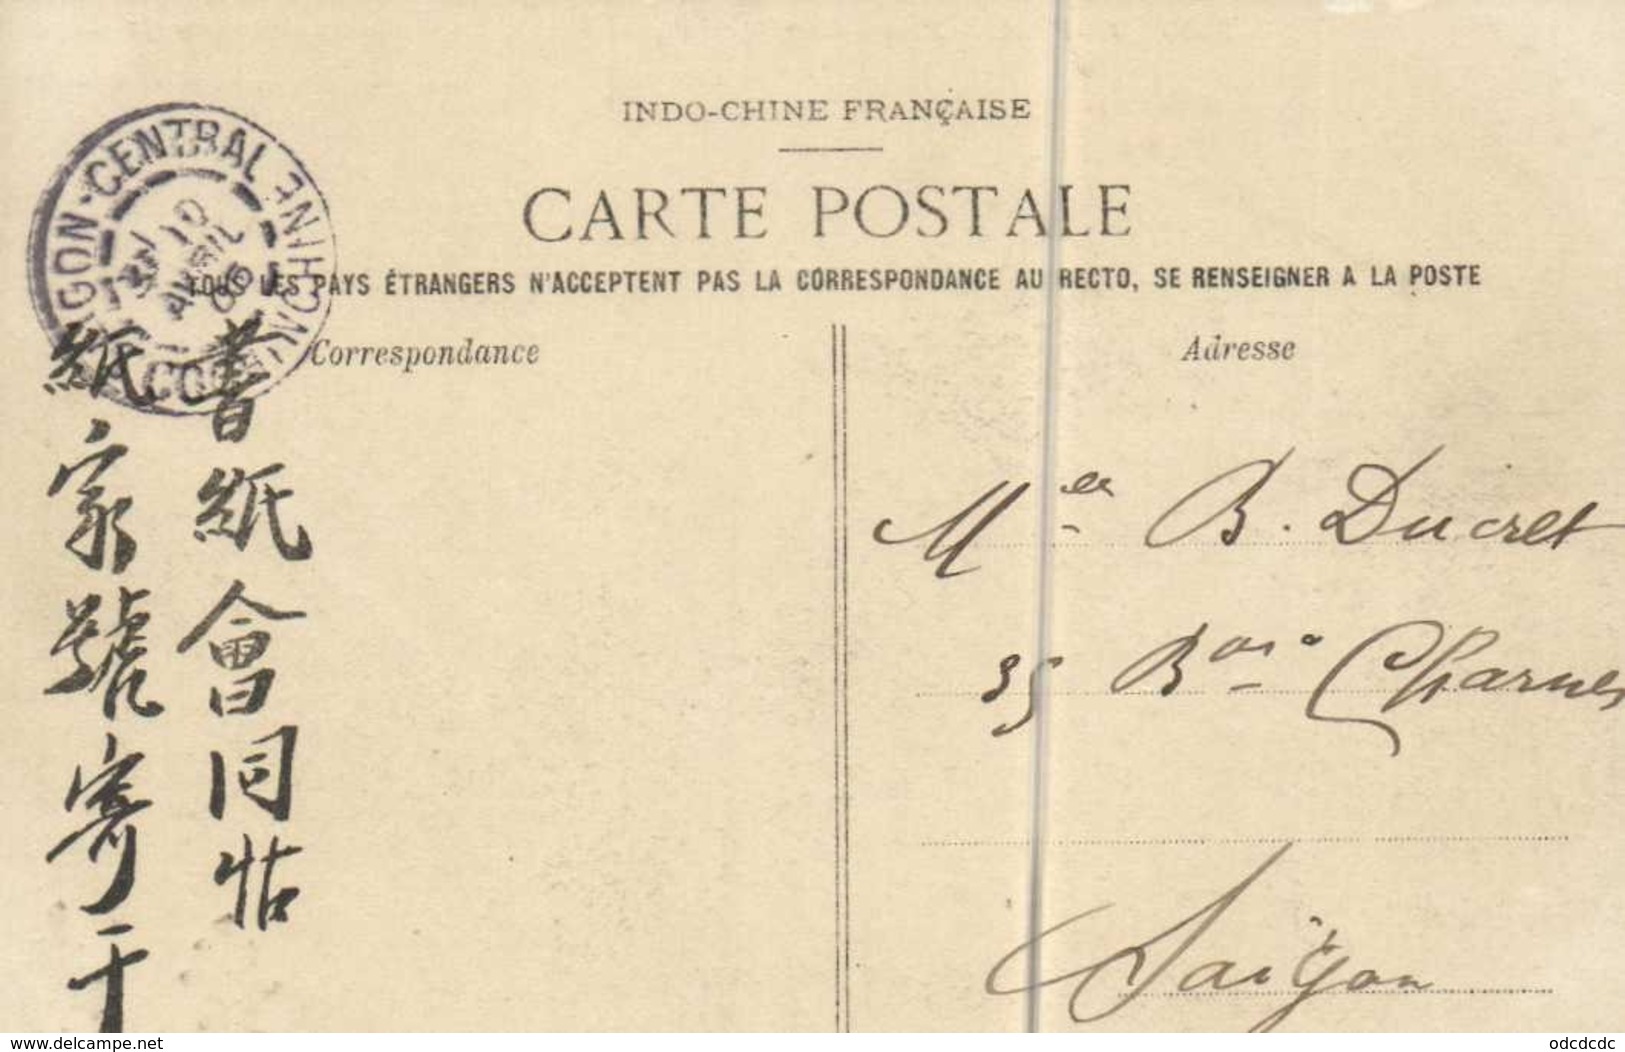 INDO-CHINE FRANÇAISE
CARTE POSTALE
TOUS LES PAYS ÉTRANGERS N'ACCEPTENT PAS LA CORRESPONDANCE AU RECTO, SE RENSEIGNER A LA POSTE
IGON-CENTRAL
COCHINCHINE
10
AVRIL
06
Correspondance
Adresse
書紙會同帖
紙家號寄于
B. Ducret
35 Charnes
Saïgon
www.delcampe.net
odcdcdc